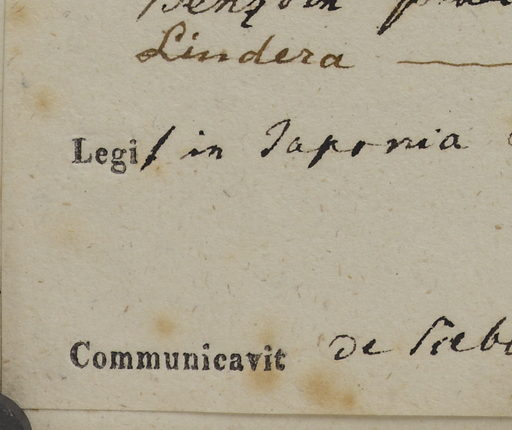 Benzoin
Lindera —
Legi/ in Japonia
Communicavit de Siebo